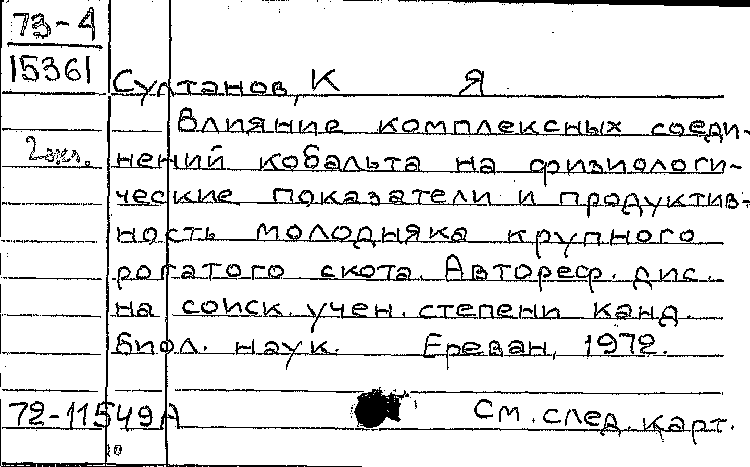 73-4
15361
Султанов, К Я
Влияние комплексных соеди-
2 экз.
нений кобальта на физиологи-
ческие показатели и продуктив-
ность молодняка крупного
рогатого скота. Автореф. дис.
на соиск. учен. степени канд.
биол. наук. Ереван, 1972.
72-11549А См. след. карт.